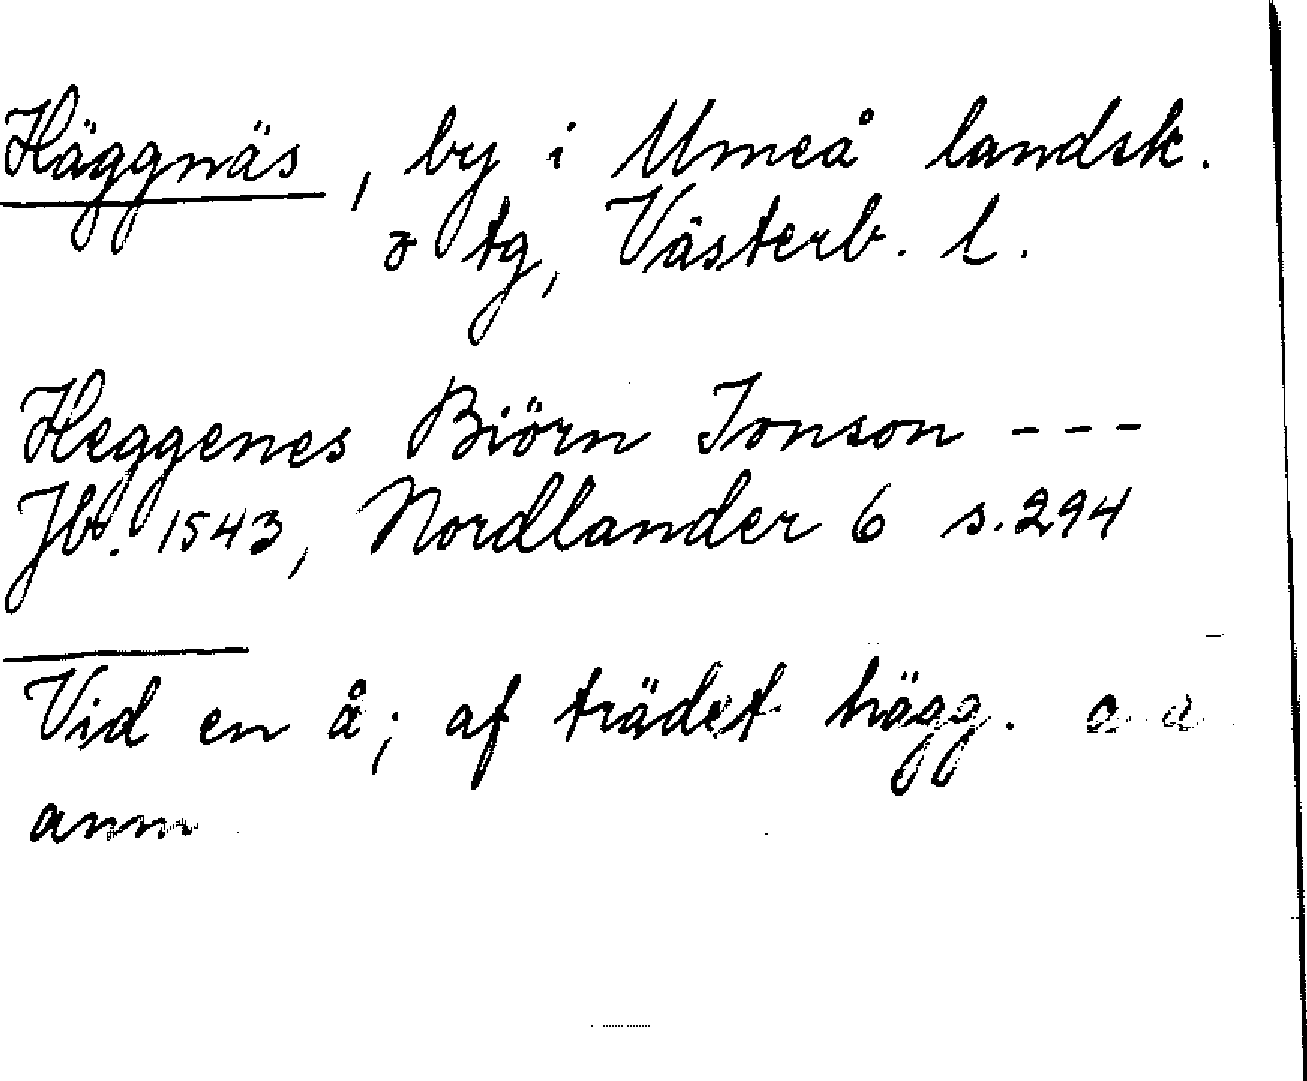 Häggnäs, by i Umeå landsk.
o tg, Västerb. l.
Heggenes Biörn Jonson ---
Jb. 1543, Nordlander 6 s. 294
Vid en å; af trädet hägg. a. a
anm